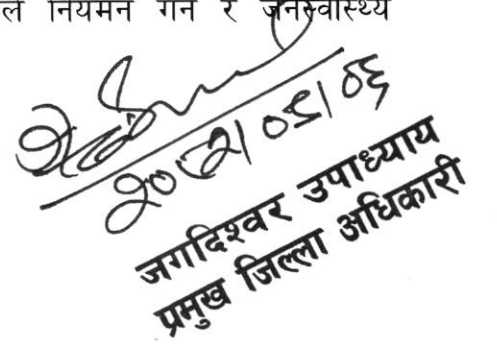 ले नियमन गर्न र जनस्वास्थ्य
जगदिश्वर उपाध्याय
प्रमुख जिल्ला अधिकारी